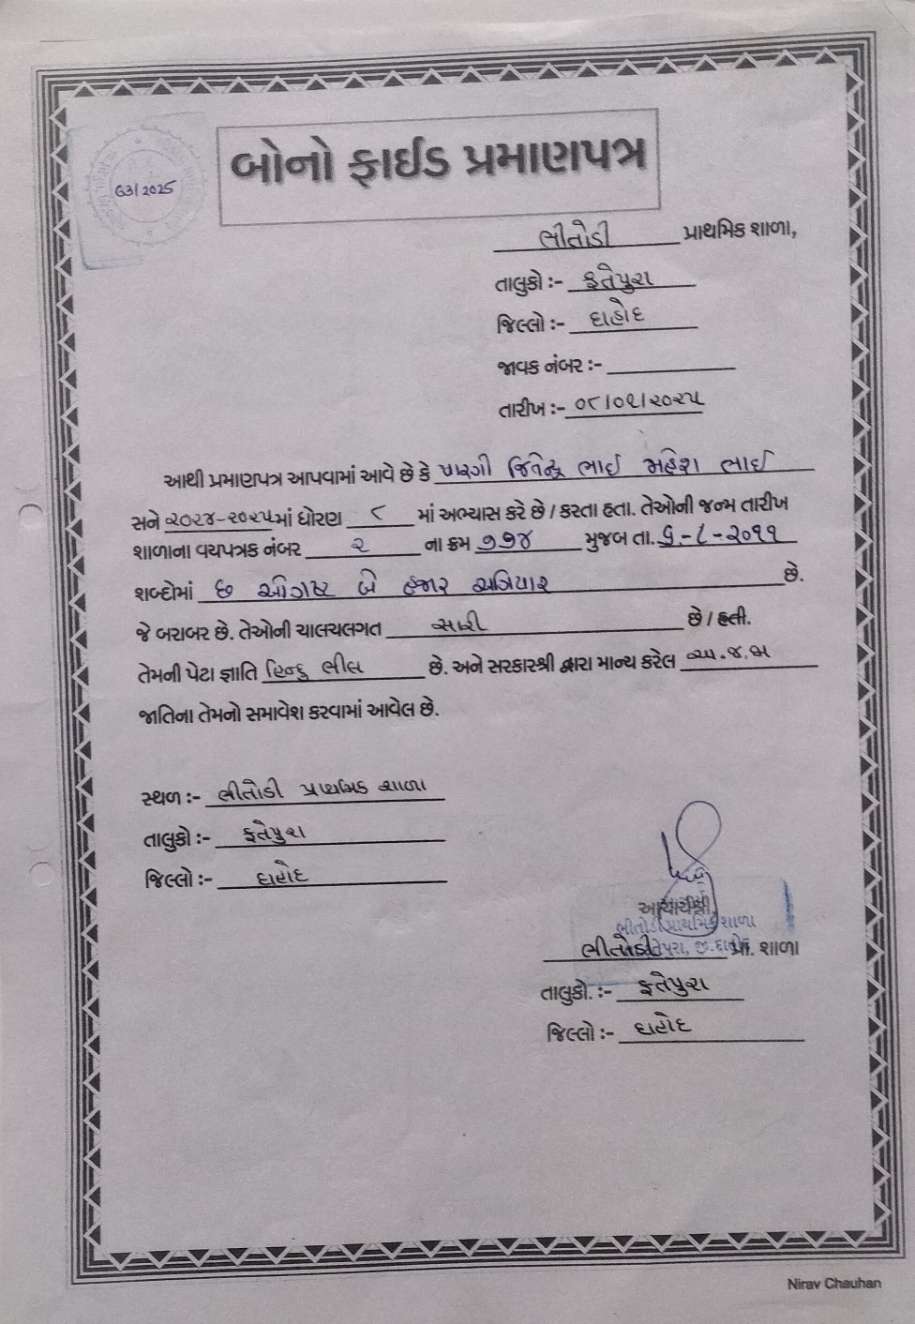 બોનો ફાઈડ પ્રમાણપત્ર
63/2025
ભીતોડી પ્રાથમિક શાળા,
તાલુકો :- ફતેપુરા
જિલ્લો :- દાહોદ
જાવક નંબર :-
તારીખ :- ૦૮/૦૧/૨૦૨૫
આથી પ્રમાણપત્ર આપવામાં આવે છે કે પારગી જિતેન્દ્ર ભાઈ મહેશ ભાઈ
સને ૨૦૨૪-૨૦૨૫માં ધોરણ ૮ માં અભ્યાસ કરે છે / કરતા હતા. તેઓની જન્મ તારીખ
શાળાના વયપત્રક નંબર ૨ ના ક્રમ ૧૧૪ મુજબ તા. ૬-૮-૨૦૧૧
શબ્દોમાં છ ઓગષ્ટ બે હજાર અગિયાર છે.
જે બરાબર છે. તેઓની ચાલચલગત સારી છે / હતી.
તેમની પેટા જ્ઞાતિ હિન્દુ ભીલ છે. અને સરકારશ્રી દ્વારા માન્ય કરેલ અ.જ.જા
જાતિના તેમનો સમાવેશ કરવામાં આવેલ છે.
સ્થળ :- ભીતોડી પ્રાથમિક શાળા
તાલુકો :- ફતેપુરા
જિલ્લો :- દાહોદ
આચાર્યશ્રી,
ભીતોડી પ્રાથમિક શાળા
ભીતોડી પ્રા. શાળા
તાલુકો. :- ફતેપુરા
જિલ્લો :- દાહોદ
Nirav Chauhan